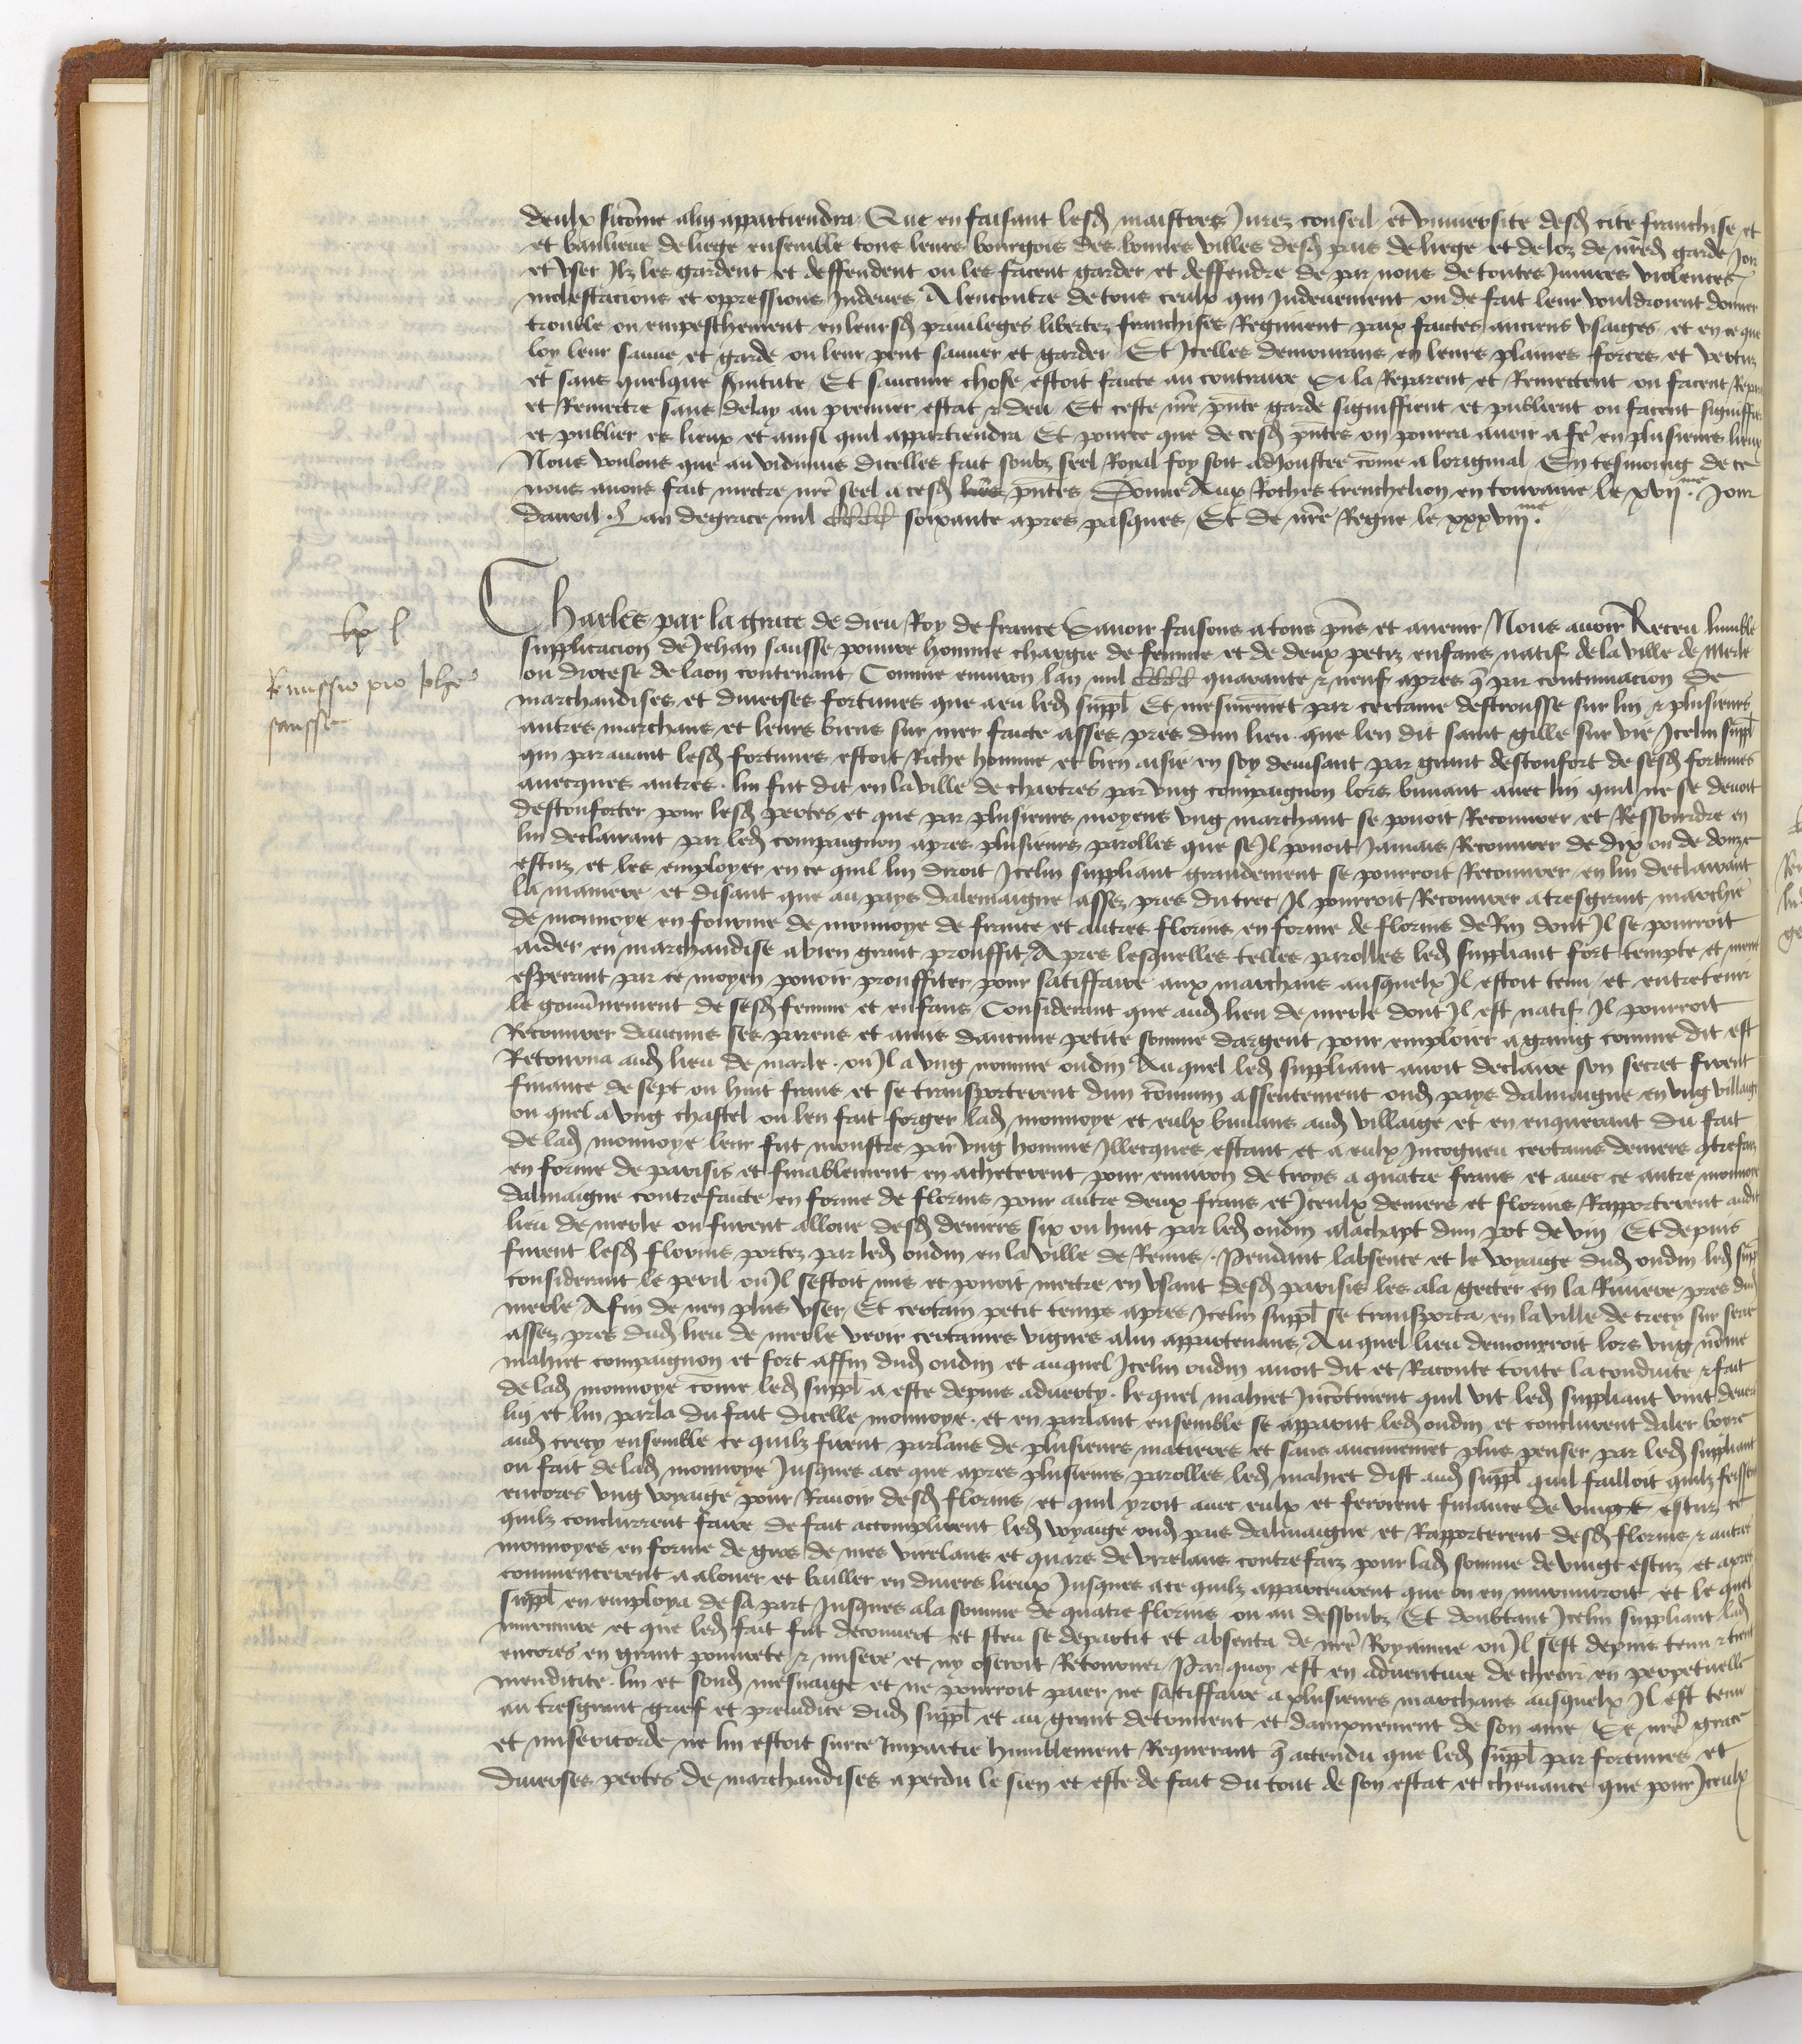 deulx sicõme alui appartiendra Que en faisant lesd maistres Jurez conseil et vniuersite desd cite franchise et
et banlieue de liege ensemble tous leurs bourgois des bonnes villes desd pais de liege et de loz de nr̃ed garde Jon
et vser Ilz les gardent et deffendent ou les facent garder et deffendre de par nous de toutes Iniures violences
molestacions et oppressions Indeues Alencontre de tous ceulx qui Indeuement ou de fait leur vouldroient donner
trouble ou empeschement en leursd priuileges libertez franchises Regiment paix faictes anciens vsaiges et en ce que
loy leur sauue et garde ou leur peut sauuer et garder Et Icelles demourans en leurs plaines forces et vertuz
et sans quelque Et saucune chose estoit faicte au contraire Si la Reparent et Remectent ou facent Repar
et Remectre sans delay au premier estat & deu Et ceste nr̃e pñte garde signiffient et publient ou facent signiffier
et publier es lieux et ainsi quil appartiendra Et pource que de cesd pñtes on pourra auoir afẽ en plusieurs lieux
Nous voulons que au vidimus dicelles fait soubz seel Royal foy soit adioustee cõme a loriginal En tesmoing de ce
nous auons fait mectre nr̃e seel a cesd lr̃es pñtes Donne Aux Roches trenchelion en touraine le xvij.me Jour
dauril . Lan de grace mil cccc soixante apres pasques Et de nr̃e Regne le xxxviij.me
Charles par la grace de dieu Roy de france Sauoir faisons a tous pñs et auenir Nous auoir Receu lumble
lxx l
supplicacion de Jehan sausse poure homme chargie de femme et de deux petiz enfans natif de la ville de Merle
Remissio pro Johe
sausse
ou diocese de laon contenant Comme enuiron lan mil cccc quarante & neuf apres q̃ par continuacion de
marchandises et diuerses fortunes que a eu led suppl Et mesmem̃et par certaine destrousse sur lui & plusieurs
autres marchans et leurs biens sur mer faicte asses pres dun lieu que len dit saint gille sur vie Icelui suppl
qui parauant lesd fortunes estoit Riche homme et bien aisie en soy deuisant par grant desconfort de sesd fortunes
auecques autres . lui fut dit en la ville de chartres par vng compaignon lors buuant auec lui quil ne se deuoit
desconforter pour lesd pertes et que par plusieurs moyens vng marchant se pouoit Recouurer et Ressourdre en
lui declairant par led compaignon apres plusieurs parolles que se Il pouoit Jamais Recouurer de dix ou de douze
escuz et les employer en ce quil lui diroit Icelui suppliant grandement se pourroit Recouurer en lui declairant
la maniere et disant que au pays dalemaigne assez pres dutrec Il pourroit Recouurer a tresgrant marche
de monnoye en fourme de monnoye de france et autres florins en forme de florins de Rin dont Il se pourroit
aider en marchandise a bien grant prouffit Apres lesquelles telles parolles led suppliant fort tempte et
esperant par ce moyen pouoir prouffiter pour satiffaire aux marchans ausquelx Il estoit tenu et entretenir
le gouũnement de sesd femme et enfans Considerant que aud lieu de merle dont Il est natif Il pourroit
Recouurer daucuns ses parens et amis daucune petite somme dargent pour emploier a gaing comme dit est
Retourna aud lieu de marle . ou Il a vng nomme oudin Auquel led suppliant auoit declaire son secret firent
finance de sept ou huit frans et se transporterent dun cõmun assentement oud pays dalmaigne en vng villaige
ou quel a vng chastel ou len fait forger lad monnoye et eulx buuans aud villaige et en enquerant du fait
de lad monnoye leur fut monstre par vng homme Illecques estant et a eulx Incogneu certains deniers 9trefaiz
en forme de parisis et finablement en acheterent pour enuiron de troys a quatre frans et auec ce autre monnoye
dalmaigne contrefaicte en forme de florins pour autre deux frans et Iceulx deniers et florins Rapporterent audit
lieu de merle ou furent alloue desd deniers six ou huit par led oudin a lachapt dun pot de vin Et depuis
furent lesd florins portez par led oudin en la ville de Reims . Pendant labsence et le voyaige dud oudin led suppl
considerant le peril ou Il sestoit mis et pouoit mectre en vsant desd parisis les ala gecter en la Riuiere pres dud
merle Afin de nen plus vser Et certain petit temps apres Icelui suppl se transporta en la ville de crecy sur serre
assez pres dud lieu de merle veoir certaines vignes alui appartenans Auquel lieu demourroit lors vng nõme
mahiet compaignon et fort affin dud oudin et auquel Icelui oudin auoit dit et Raconte toute la conduite & fait
de lad monnoye cõme led suppl a este depuis aduerty . lequel mahiet Incõtinent quil vit led suppliant vint deuers
lui et lui parla du fait dicelle monnoye . et en parlant ensemble se apparut led oudin et conclurent daler boyre
aud crecy ensemble ce quilz firent parlans de plusieurs matieres et sans aucunemet plus penser par led suppliant
ou fait de lad monnoye Jusques ace que apres plusieurs parolles led mahiet dist aud suppl quil failloit quilz feissent
encores vng voyaige pour Rauoir desd florins et quil yroit auec eulx et feroient finance de vingt escuz ce
quilz conclurrent faire de fait accomplirent led voyaige oud pais dalmaigne et Rapporterent desd florins & autres
monnoyes en forme de gros de mes virelans et quars de virelans contrefaiz pour lad somme de vingt escuz et apres
commencerent a alouer et bailler en diuers lieux Jusques ace quilz apparceurent que on en murmuroit et le quel
suppl en employa de sa part Jusques ala somme de quatre florins ou au dessoubz Et doubtant Icelui suppliant lad
murmure et que led fait fut decouuert et sceu se departit et absenta de nr̃e Royaume ou Il sest depuis tenu & tient
encores en grant pourete & misere et ny oseroit Retourner Par quoy est en aduenture de cheoir en perpetuelle
mendicite . lui et sond mesnaige et ne pourroit paier ne satiffaire a plusieurs marchans ausquelx Il est tenu
au tresgrant grief et preiudice dud suppl et au grant detriment et dampnement de son ame Se nr̃e grace
et misericorde ne lui estoit surce Impartie humblement Requerant q̃ actendu que led suppl par fortunes et
diuerses pertes de marchandises a perdu le sien et este de fait du tout de son estat et cheuance que pour Iceulx